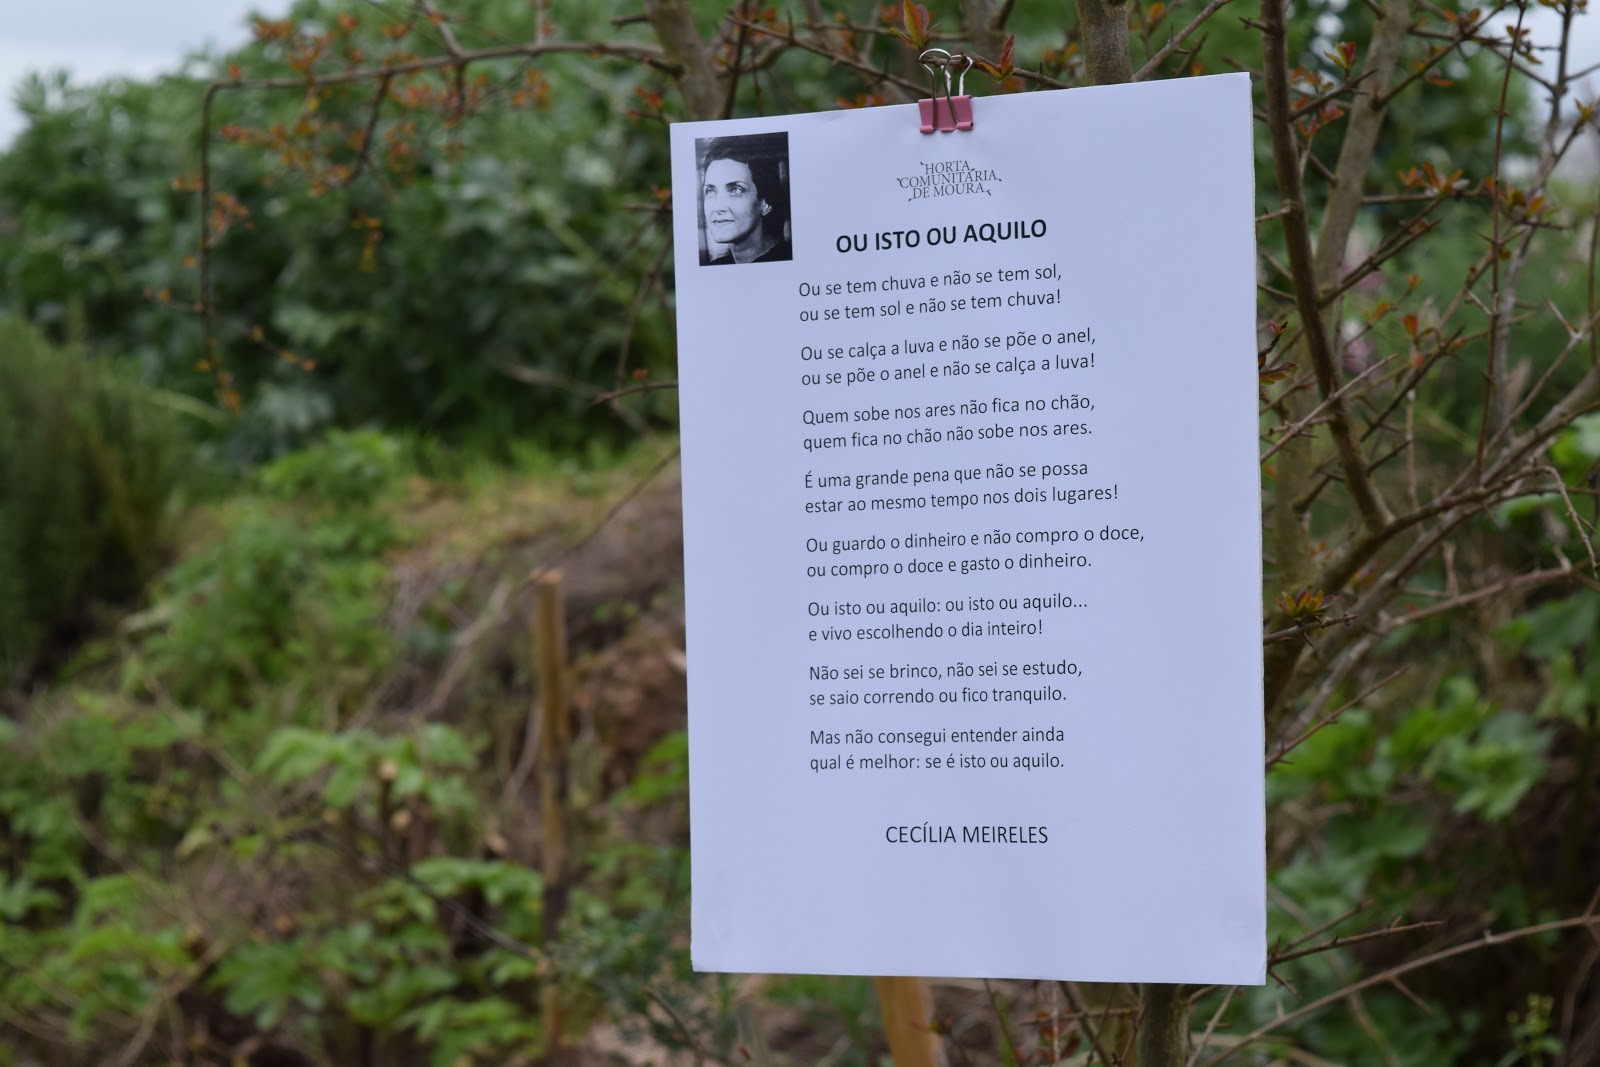 HORTA
COMUNITÁRIA
DE MOURA
OU ISTO OU AQUILO
Ou se tem chuva e não se tem sol,
ou se tem sol e não se tem chuva!
Ou se calça a luva e não se põe o anel,
ou se põe o anel e não se calça a luva!
Quem sobe nos ares não fica no chão,
quem fica no chão não sobe nos ares.
É uma grande pena que não se possa
estar ao mesmo tempo nos dois lugares!
Ou guardo o dinheiro e não compro o doce,
ou compro o doce e gasto o dinheiro.
Ou isto ou aquilo: ou isto ou aquilo...
e vivo escolhendo o dia inteiro!
Não sei se brinco, não sei se estudo,
se saio correndo ou fico tranquilo.
Mas não consegui entender ainda
qual é melhor: se é isto ou aquilo.
CECÍLIA MEIRELES